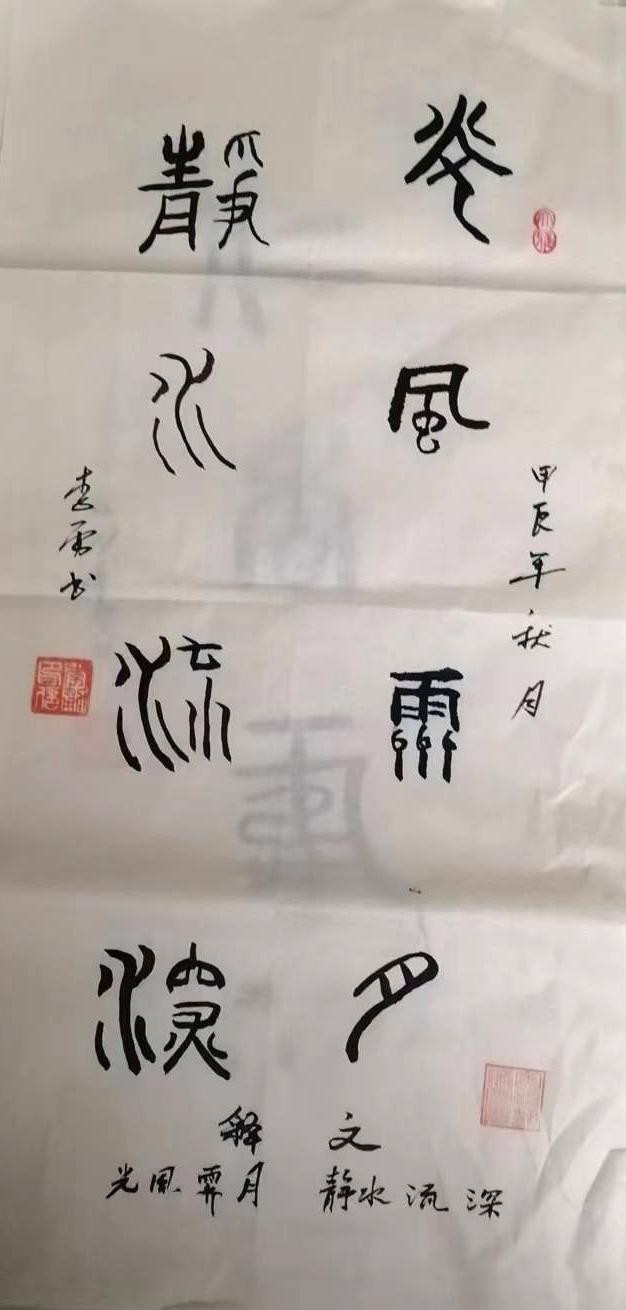 甲辰年秋月
光風霽月
靜水流深
李 书
释文
光風霁月 静水流深